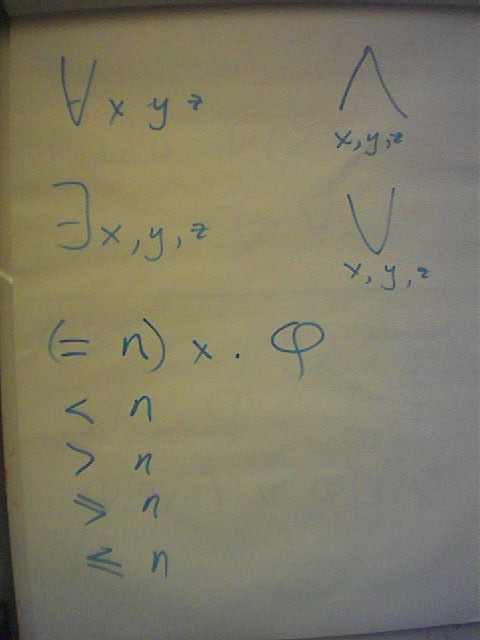 ∀ x y z ⋀ x, y, z
∃ x, y, z ⋁ x, y, z
(= n) x . φ
< n
> n
⩾ n
⩽ n